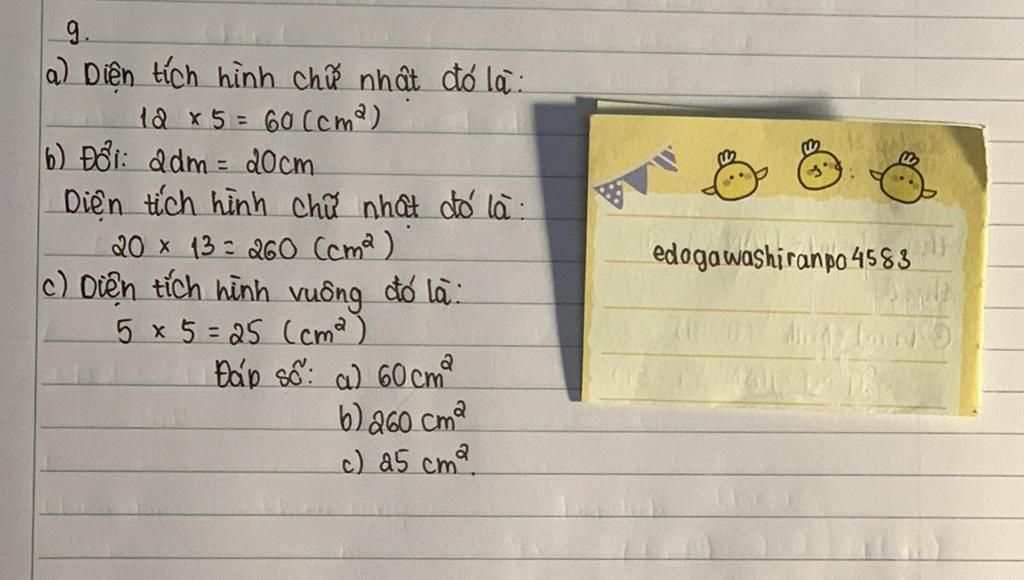 9.
a) Diện tích hình chữ nhật đó là:
12 x 5 = 60 (cm²)
b) Đổi: 2dm = 20cm
Diện tích hình chữ nhật đó là:
20 x 13 = 260 (cm²)
c) Diện tích hình vuông đó là:
5 x 5 = 25 (cm²)
Đáp số: a) 60cm²
b) 260 cm²
c) 25 cm².
edogawashiranpo4583